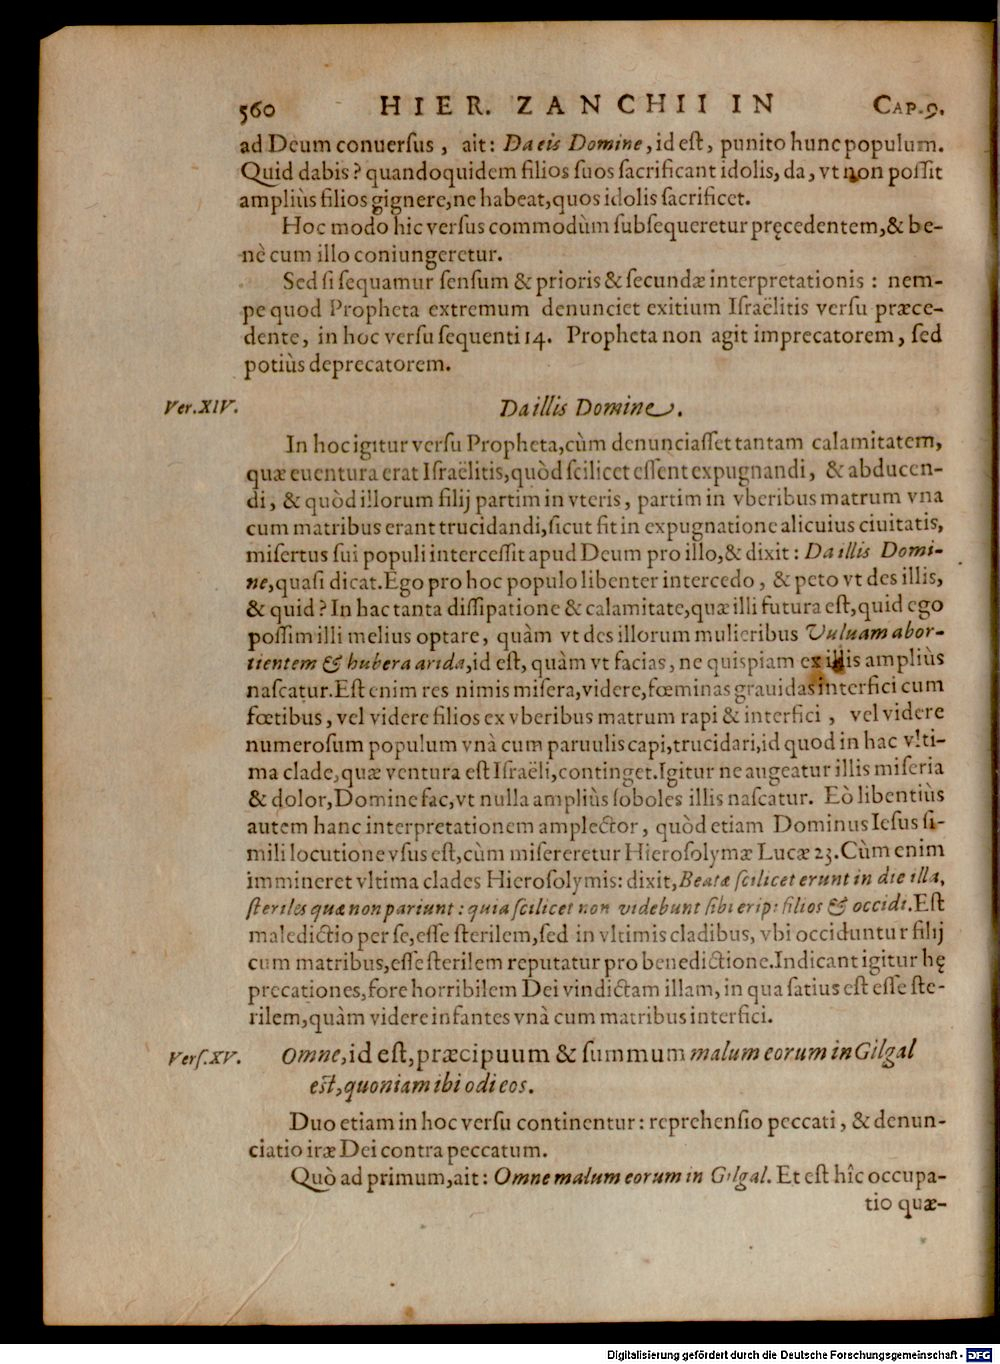 560 HIER. ZANCHII IN CAP. 9.
ad Deum conuersus, ait: Da eis Domine, id est, punito hunc populum.
Quid dabis? quandoquidem filios suos sacrificant idolis, da, vt non possit
ampliùs filios gignere, ne habeat, quos idolis sacrificet.
Hoc modo hic versus commodùm subsequeretur pręcedentem, & be-
nè cum illo coniungeretur.
Sed si sequamur sensum & prioris & secundæ interpretationis: nem-
pe quod Propheta extremum denunciet exitium Israëlitis versu præce-
dente, in hoc versu sequenti 14. Propheta non agit imprecatorem, sed
potiùs deprecatorem.
Ver. XIV. Da illis Domine.
In hoc igitur versu Propheta, cùm denunciasset tantam calamitatem,
quæ euentura erat Israëlitis, quòd scilicet essent expugnandi, & abducen-
di, & quòd illorum filij partim in vteris, partim in vberibus matrum vna
cum matribus erant trucidandi, sicut fit in expugnatione alicuius ciuitatis,
misertus sui populi intercessit apud Deum pro illo, & dixit: Da illis Domi-
ne, quasi dicat. Ego pro hoc populo libenter intercedo, & peto vt des illis,
& quid? In hac tanta dissipatione & calamitate, quæ illi futura est, quid ego
possim illi melius optare, quàm vt des illorum mulieribus Vuluam abor-
tientem & hubera arida, id est, quàm vt facias, ne quispiam ex illis ampliùs
nascatur. Est enim res nimis misera, videre, fœminas grauidas interfici cum
fœtibus, vel videre filios ex vberibus matrum rapi & interfici, vel videre
numerosum populum vnà cum paruulis capi, trucidari, id quod in hac vlti-
ma clade, quæ ventura est Israëli, continget. Igitur ne augeatur illis miseria
& dolor, Domine fac, vt nulla ampliùs soboles illis nascatur. Eò libentiùs
autem hanc interpretationem amplector, quòd etiam Dominus Iesus si-
mili locutione vsus est, cùm misereretur Hierosolymæ Lucæ 23. Cùm enim
immineret vltima clades Hierosolymis: dixit, Beatæ scilicet erunt in die illa,
steriles quæ non pariunt: quia scilicet non videbunt sibi eripi filios & occidi. Est
maledictio per se, esse sterilem, sed in vltimis cladibus, vbi occiduntur filij
cum matribus, esse sterilem reputatur pro benedictione. Indicant igitur hę
precationes, fore horribilem Dei vindictam illam, in qua satius est esse ste-
rilem, quàm videre infantes vnà cum matribus interfici.
Vers. XV. Omne, id est, præcipuum & summum malum eorum in Gilgal
est, quoniam ibi odi eos.
Duo etiam in hoc versu continentur: reprehensio peccati, & denun-
ciatio iræ Dei contra peccatum.
Quò ad primum, ait: Omne malum eorum in Gilgal. Et est hîc occupa-
tio quæ-
Digitalisierung gefördert durch die Deutsche Forschungsgemeinschaft - DFG